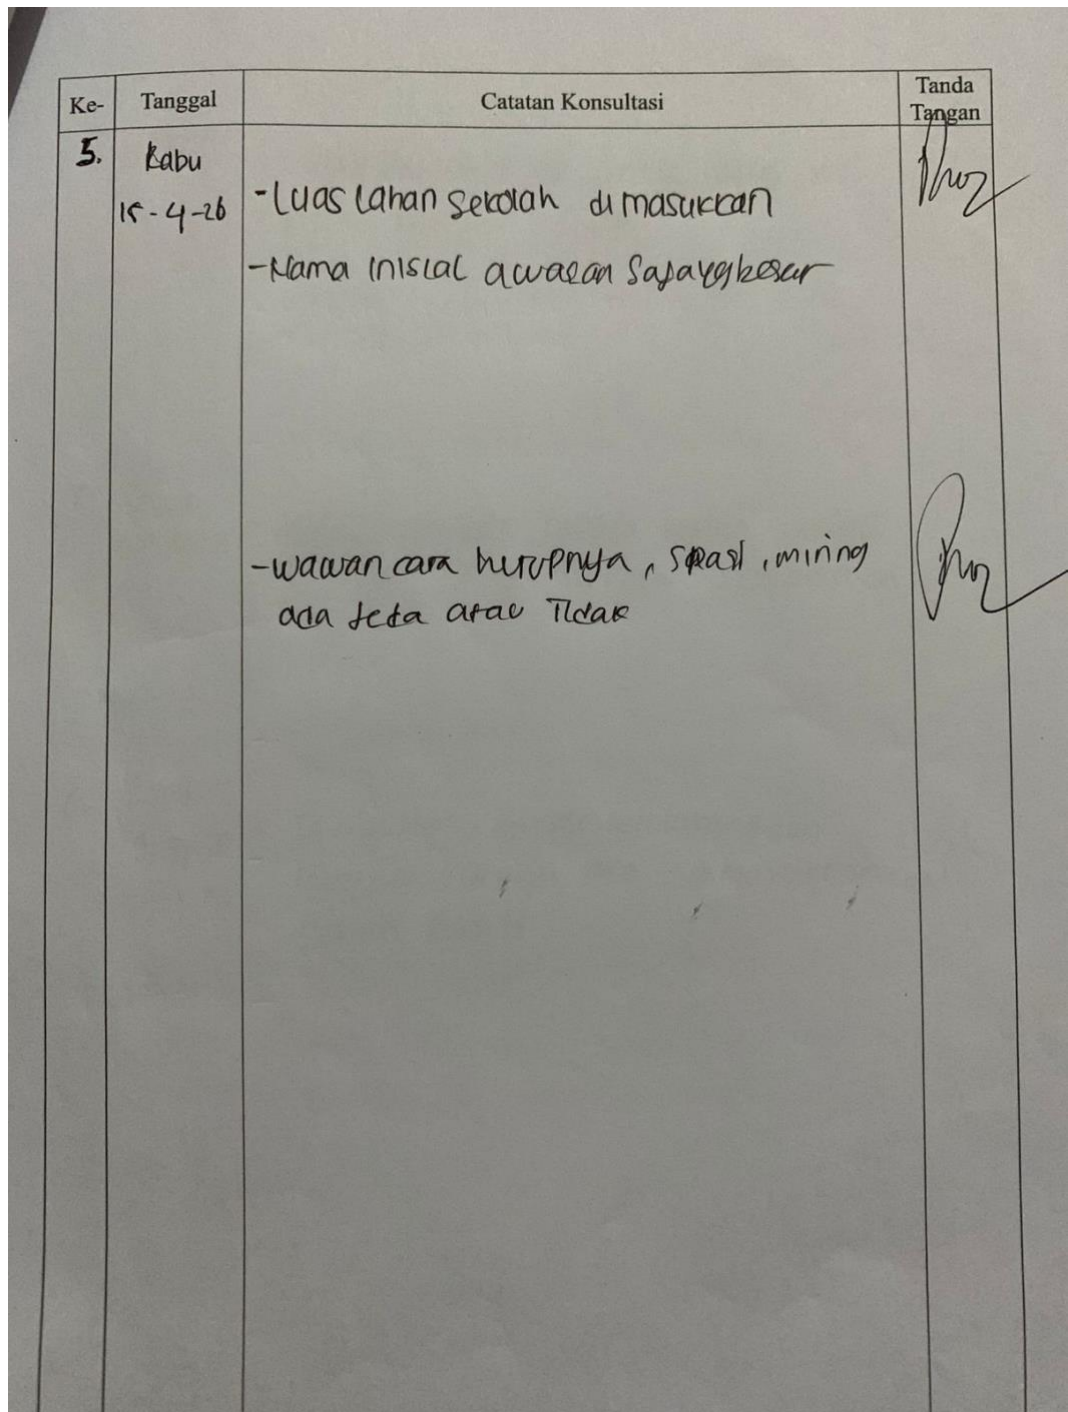 Ke-
Tanggal
Catatan Konsultasi
Tanda
Tangan
5.
Rabu
15-4-26
-Luas lahan sekolah dimasukkan
-Nama inisial awalan saja yg besar
-wawancara hurupnya, spasi, miring
ada jeda atau Tidak